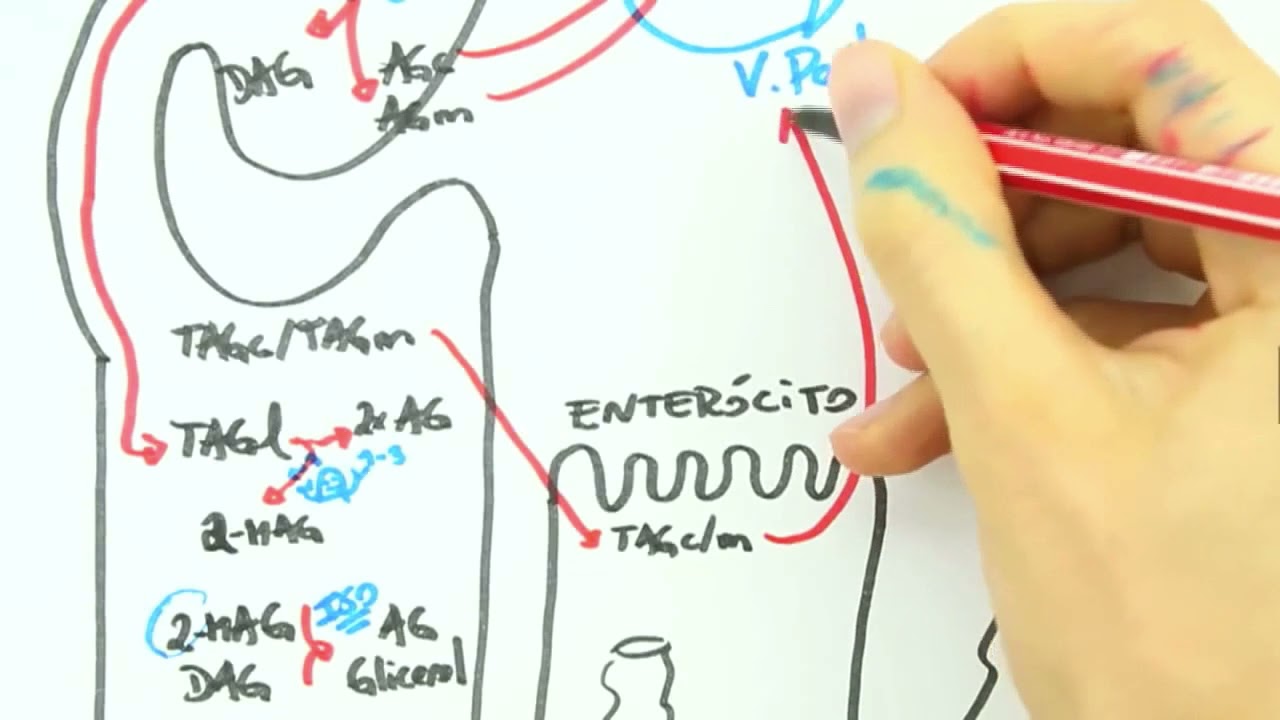 DAG AGc
AGm
V. Po
TAGc/TAGm
TAGl 2xAG
2-3
2-MAG
ENTERÓCITO
TAGc/m
2-MAG ISO AG
DAG Glicerol